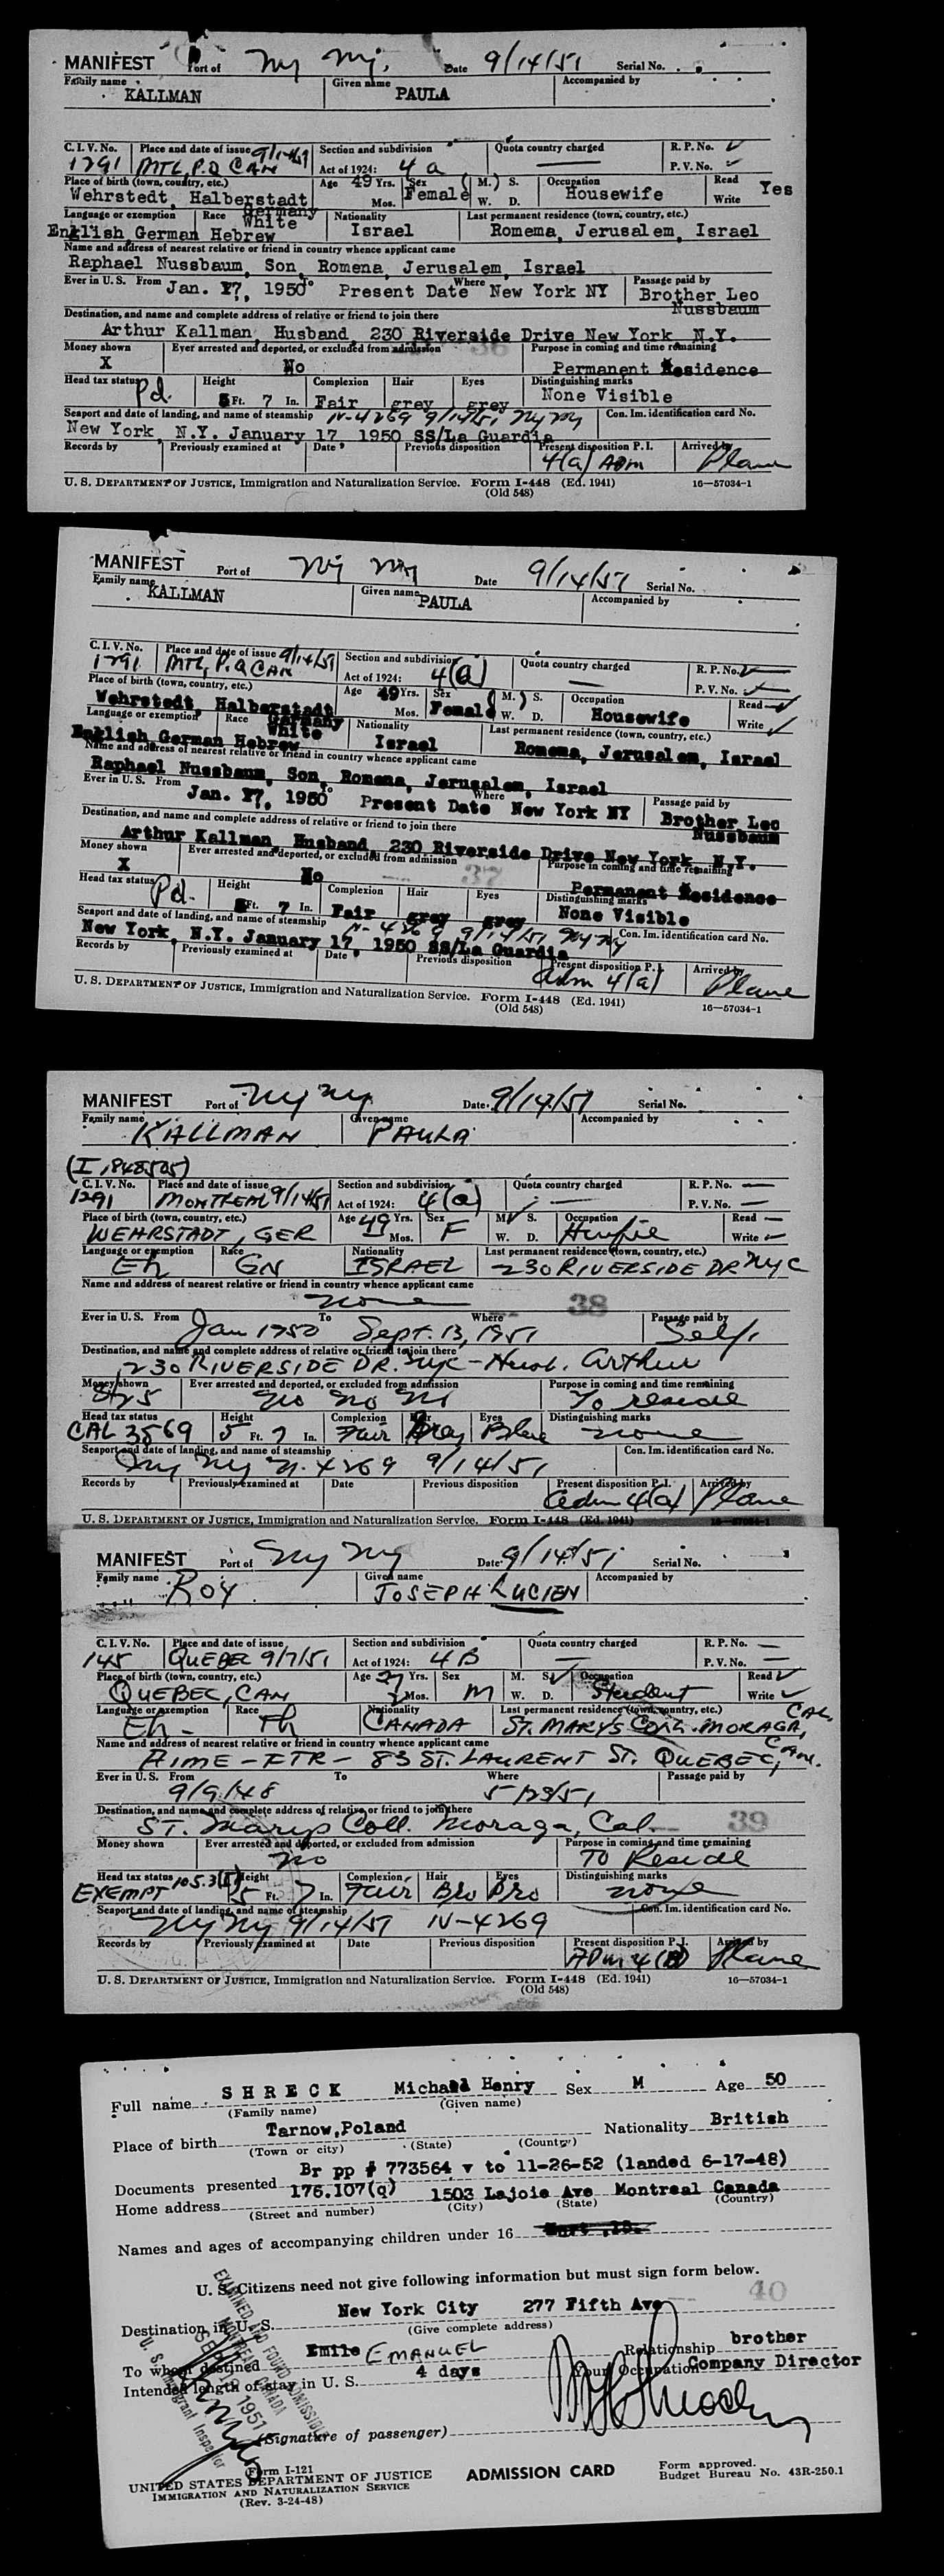 MANIFEST Port of Ny Ny. Date 9/14/51 Serial No.
Family name Given name Accompanied by
KALLMAN PAULA
C. I. V. No. Place and date of issue 9/14/51 Section and subdivision Quota country charged R. P. No. ✓
1291 MTL, P.Q CAN Act of 1924: 4 a — P. V. No. ✓
Place of birth (town, country, etc.) Age 49 Yrs. Sex (M.) S. Occupation Read
Wehrstedt, Halberstadt Mos. Female W. D. Housewife Write Yes
Germany
Language or exemption Race White Nationality Last permanent residence (town, country, etc.)
English German Hebrew Israel Romema, Jerusalem, Israel
Name and address of nearest relative or friend in country whence applicant came
Raphael Nussbaum, Son, Romena, Jerusalem, Israel
Ever in U. S. From To Where Passage paid by
Jan. 17, 1950 Present Date New York NY Brother Leo
Nussbaum
Destination, and name and complete address of relative or friend to join there
Arthur Kallman, Husband, 230 Riverside Drive New York, N.Y.
Money shown Ever arrested and deported, or excluded from admission 36 Purpose in coming and time remaining
X No Permanent Residence
Head tax status Height Complexion Hair Eyes Distinguishing marks
Pd. 5 Ft. 7 In. Fair grey grey None Visible
Seaport and date of landing, and name of steamship N-4269 9/14/51 Ny Ny Con. Im. identification card No.
New York, N.Y. January 17, 1950 SS/La Guardia
Records by Previously examined at Date Previous disposition Present disposition P. I. Arrived by
4(a) ADM Plane
U. S. DEPARTMENT OF JUSTICE, Immigration and Naturalization Service. Form I-448 (Ed. 1941) 16—57034-1
(Old 548)
MANIFEST Port of Ny Ny Date 9/14/51 Serial No.
Family name Given name Accompanied by
KALLMAN PAULA
C. I. V. No. Place and date of issue 9/14/51 Section and subdivision Quota country charged R. P. No.
1291 MTL, P.Q CAN Act of 1924: 4(a) — P. V. No.
Place of birth (town, country, etc.) Age 49 Yrs. Sex (M.) S. Occupation Read ✓
Wehrstedt, Halberstadt Mos. Female W. D. Housewife Write ✓
Germany
Language or exemption Race White Nationality Last permanent residence (town, country, etc.)
English German Hebrew Israel Romema, Jerusalem, Israel
Name and address of nearest relative or friend in country whence applicant came
Raphael Nussbaum, Son, Romena, Jerusalem, Israel
Ever in U. S. From To Where Passage paid by
Jan. 17, 1950 Present Date New York NY Brother Leo
Nussbaum
Destination, and name and complete address of relative or friend to join there
Arthur Kallman, Husband, 230 Riverside Drive New York, N.Y.
Money shown Ever arrested and deported, or excluded from admission 37 Purpose in coming and time remaining
X No Permanent Residence
Head tax status Height Complexion Hair Eyes Distinguishing marks
Pd. 5 Ft. 7 In. Fair grey grey None Visible
Seaport and date of landing, and name of steamship N-4269 9/14/51 Ny Ny Con. Im. identification card No.
New York, N.Y. January 17, 1950 SS/La Guardia
Records by Previously examined at Date Previous disposition Present disposition P. I. Arrived by
Adm 4(a) Plane
U. S. DEPARTMENT OF JUSTICE, Immigration and Naturalization Service. Form I-448 (Ed. 1941) 16—57034-1
(Old 548)
MANIFEST Port of Ny Ny Date 9/14/51 Serial No.
Family name Given name Accompanied by
KALLMAN PAULA
C. I. V. No. Place and date of issue Section and subdivision Quota country charged R. P. No. —
1291 MONTREAL 9/14/51 Act of 1924: 4(a) — P. V. No. —
Place of birth (town, country, etc.) Age 49 Yrs. Sex M. ✓ S. Occupation Read —
WEHRSTADT, GER Mos. F W. D. Write
Language or exemption Race Nationality Last permanent residence (town, country, etc.)
Eh GN ISRAEL 230 RIVERSIDE DR NYC
Name and address of nearest relative or friend in country whence applicant came
none 38
Ever in U. S. From To Where Passage paid by
Jan 1950 Sept. 13, 1951 Self
Destination, and name and complete address of relative or friend to join there
230 RIVERSIDE DR. Nyc - Husb. Arthur
Money shown Ever arrested and deported, or excluded from admission Purpose in coming and time remaining
$25 No No No To reside
Head tax status Height Complexion Hair Eyes Distinguishing marks
CAL 3569 5 Ft. 7 In. Fair Grey Blue none
Seaport and date of landing, and name of steamship Con. Im. identification card No.
Ny Ny N-4269 9/14/51
Records by Previously examined at Date Previous disposition Present disposition P. I. Arrived by
Adm 4(a) Plane
U. S. DEPARTMENT OF JUSTICE, Immigration and Naturalization Service. Form I-448 (Ed. 1941) 16—57034-1
MANIFEST Port of Ny Ny Date 9/14/51 Serial No.
Family name Given name Accompanied by
ROY JOSEPH LUCIEN
C. I. V. No. Place and date of issue Section and subdivision Quota country charged R. P. No. —
145 QUEBEC 9/7/51 Act of 1924: 4 B — P. V. No. —
Place of birth (town, country, etc.) Age 27 Yrs. Sex M. S. ✓ Occupation Read ✓
QUEBEC, CAN Mos. M W. D. Student Write ✓
Language or exemption Race Nationality Last permanent residence (town, country, etc.) CAL.
Eh - Fh CANADA ST. MARYS COLL. MORAGA,
Name and address of nearest relative or friend in country whence applicant came
AIME - FTR - 83 ST. LAURENT ST. QUEBEC, CAN.
Ever in U. S. From To Where Passage paid by
9/9/48 5/23/51
Destination, and name and complete address of relative or friend to join there
ST. Marys Coll. Moraga, Cal. 39
Money shown Ever arrested and deported, or excluded from admission Purpose in coming and time remaining
No TO Reside
Head tax status 105.3 Height Complexion Hair Eyes Distinguishing marks
EXEMPT 5 Ft. 7 In. Fair Bro Bro none
Seaport and date of landing, and name of steamship Con. Im. identification card No.
Ny Ny 9/14/51 N-4269
Records by Previously examined at Date Previous disposition Present disposition P. I. Arrived by
ADM 4(B) Plane
U. S. DEPARTMENT OF JUSTICE, Immigration and Naturalization Service. Form I-448 (Ed. 1941) 16—57034-1
(Old 548)
Full name SHRECK Michael Henry Sex M Age 50
(Family name) (Given name)
Place of birth Tarnow, Poland Nationality British
(Town or city) (State) (Country)
Documents presented Br pp # 773564 v to 11-26-52 (landed 6-17-48)
176.107(q)
Home address 1503 Lajoie Ave Montreal Canada
(Street and number) (City) (State) (Country)
Names and ages of accompanying children under 16
U. S. Citizens need not give following information but must sign form below.
40
Destination in U. S. New York City 277 Fifth Ave
(Give complete address)
To whom destined Emile EMANUEL Relationship brother
Intended length of stay in U. S. 4 days Your Occupation Company Director
(Signature of passenger)
EXAMINED AND FOUND ADMISSIBLE
MONTREAL CANADA
SEP 1951
U. S. Immigrant Inspector
Form I-121
UNITED STATES DEPARTMENT OF JUSTICE
IMMIGRATION AND NATURALIZATION SERVICE
(Rev. 3-24-48)
ADMISSION CARD
Form approved.
Budget Bureau No. 43R-250.1